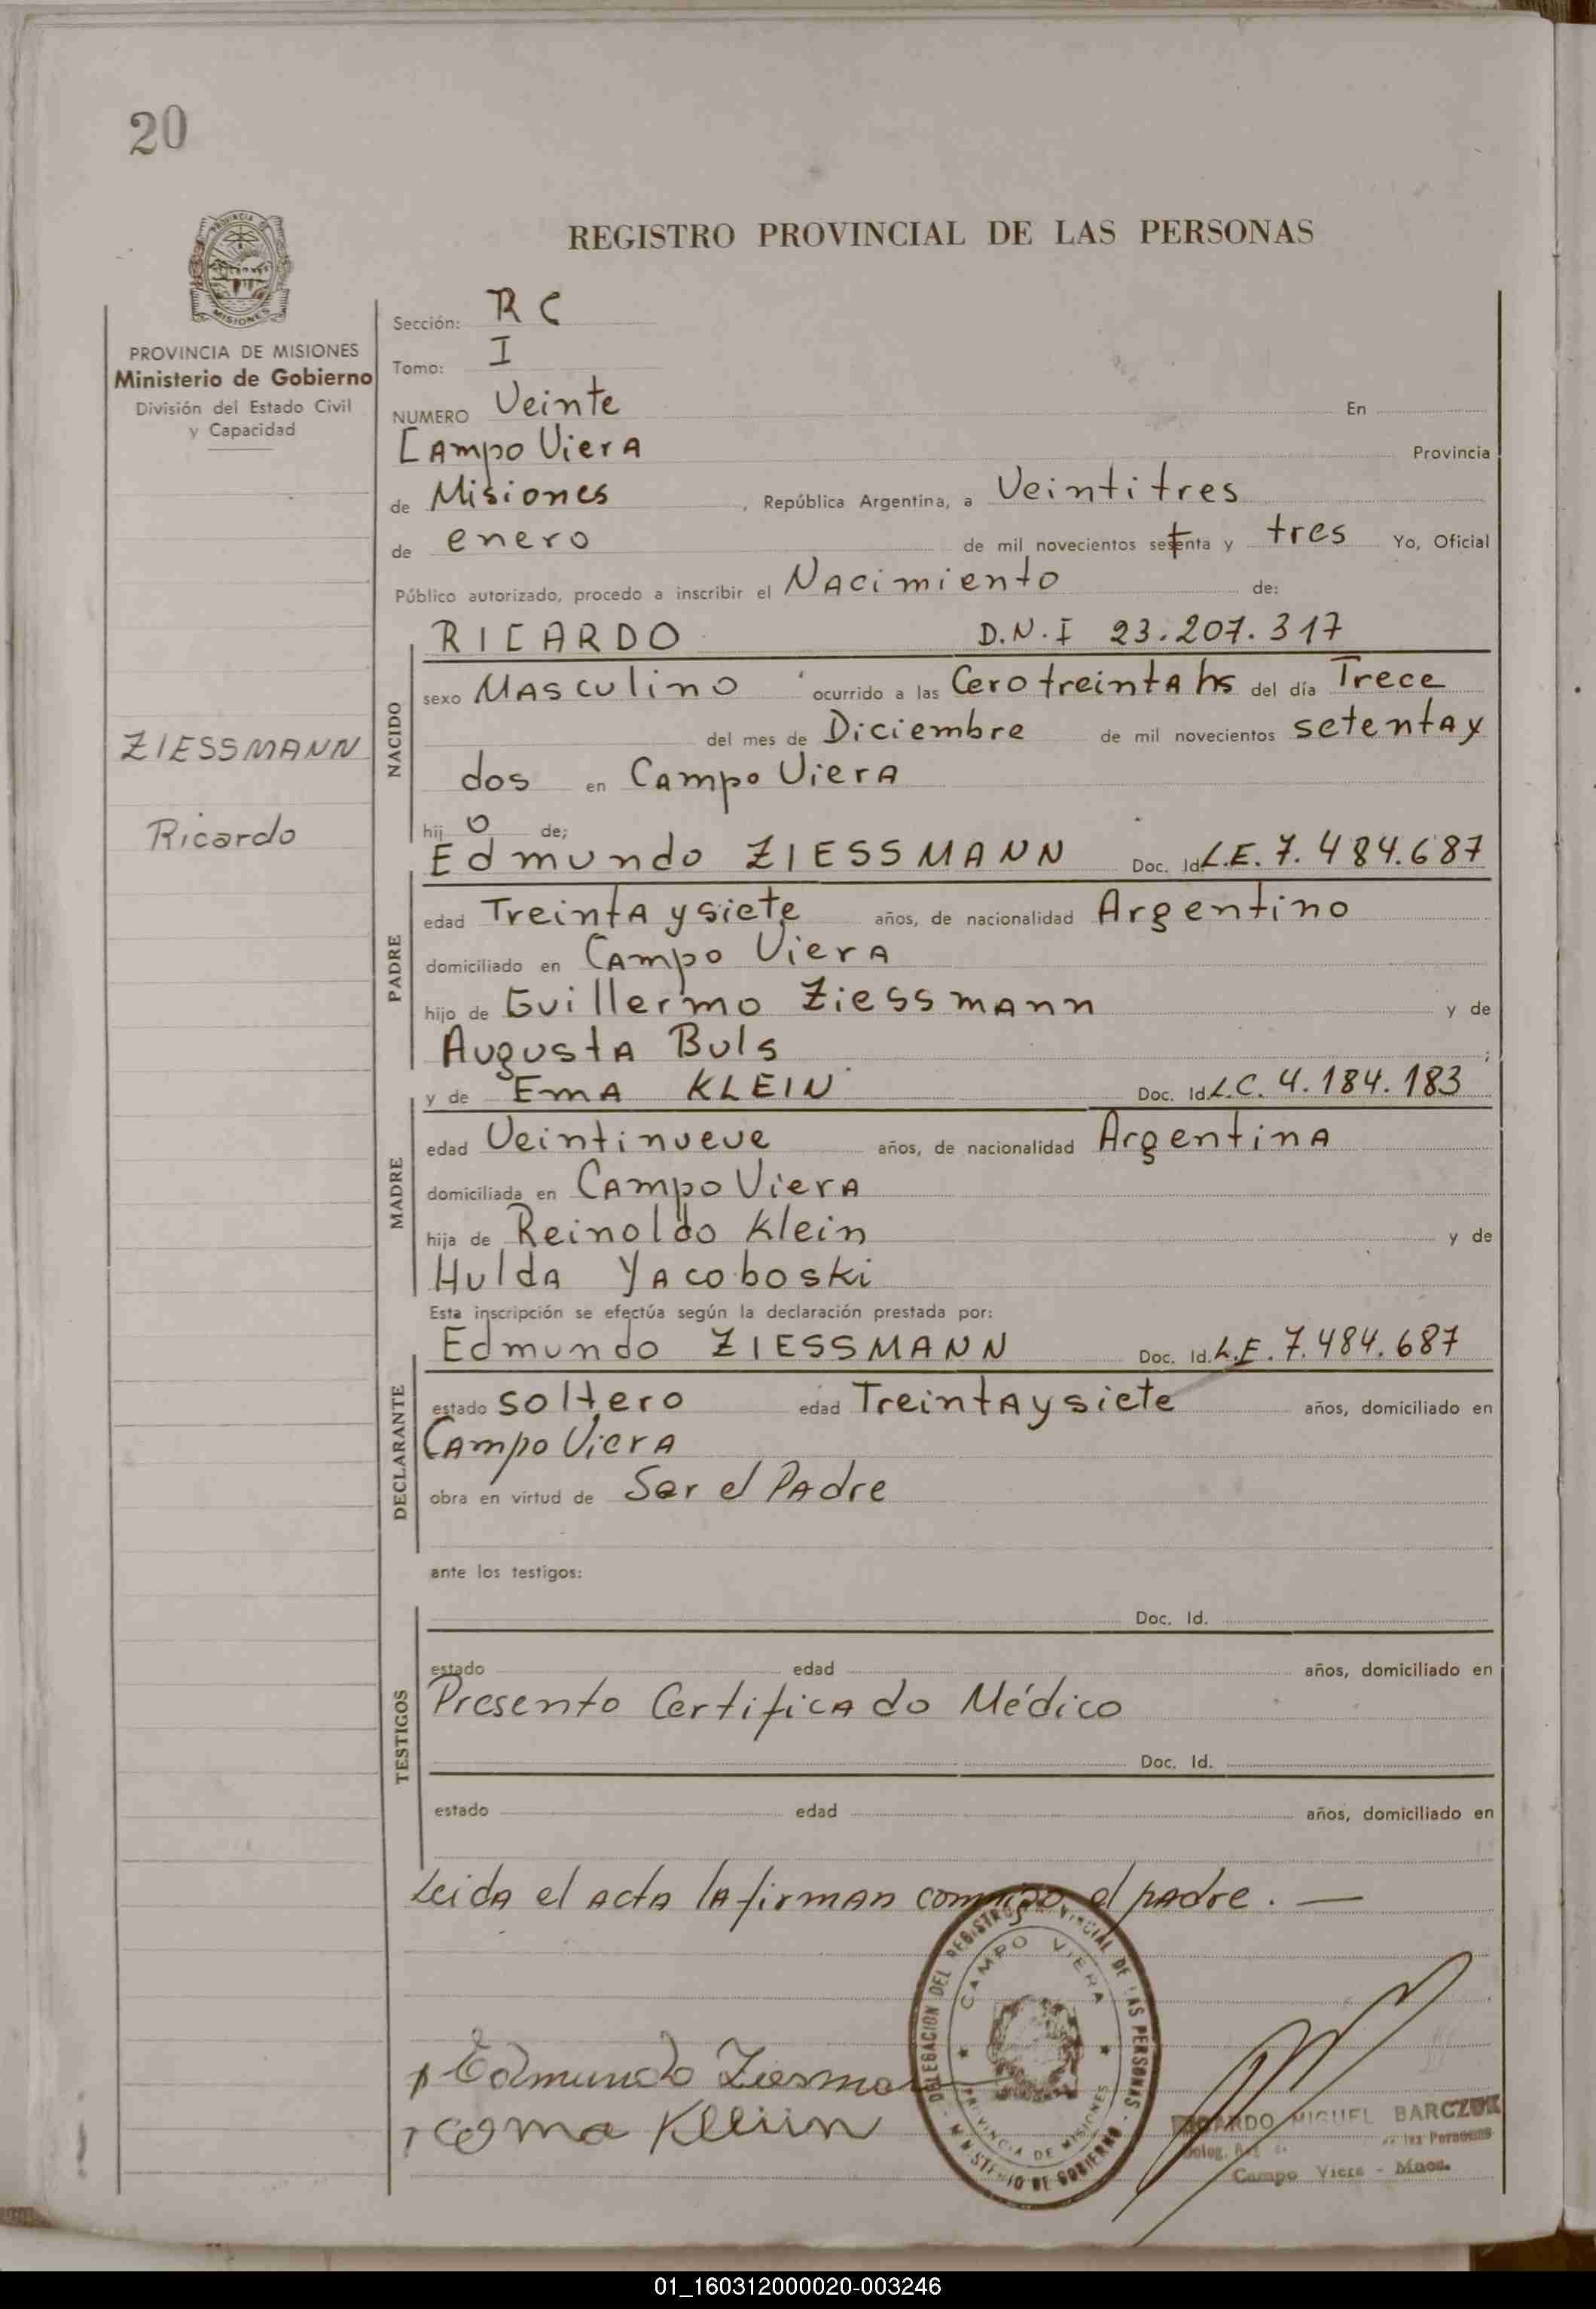 20
REGISTRO PROVINCIAL DE LAS PERSONAS
MISIONES
PROVINCIA DE MISIONES
Ministerio de Gobierno
División del Estado Civil
y Capacidad
ZIESSMANN
Ricardo
Sección: RC
Tomo: I
NUMERO Veinte En
Campo Viera Provincia
de Misiones, República Argentina, a Veintitres
de enero de mil novecientos setenta y tres Yo, Oficial
Público autorizado, procedo a inscribir el Nacimiento de:
NACIDO
RICARDO D.N.I 23.207.317
sexo Masculino ocurrido a las Cero treinta hs del día Trece
del mes de Diciembre de mil novecientos setenta y
dos en Campo Viera
hij o de;
PADRE
Edmundo ZIESSMANN Doc. Id. L.E. 7.484.687
edad Treinta y siete años, de nacionalidad Argentino
domiciliado en Campo Viera
hijo de Guillermo Ziessmann y de
Augusta Buls ;
MADRE
y de Ema KLEIN Doc. Id. L.C. 4.184.183
edad Veintinueve años, de nacionalidad Argentina
domiciliada en Campo Viera
hija de Reinoldo Klein y de
Hulda Yacoboski
Esta inscripción se efectúa según la declaración prestada por:
DECLARANTE
Edmundo ZIESSMANN Doc. Id. L.E. 7.484.687
estado soltero edad Treinta y siete años, domiciliado en
Campo Viera
obra en virtud de Ser el Padre
ante los testigos:
TESTIGOS
Doc. Id.
estado edad años, domiciliado en
Presento Certificado Médico
Doc. Id.
estado edad años, domiciliado en
Leida el acta la firman conmigo el padre. —
DELEGACION DEL REGISTRO PROVINCIAL DE LAS PERSONAS - MINISTERIO DE GOBIERNO -
CAMPO VIERA
PROVINCIA DE MISIONES
Edmundo
Ema Kleiin
RICARDO MIGUEL BARCZUK
Deleg. de las Personas
Campo Viera - Mnes.
01_160312000020-003246